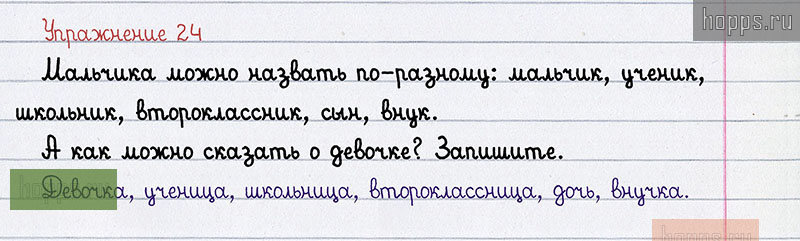 hopps.ru
Упражнение 24
Мальчика можно назвать по-разному: мальчик, ученик,
школьник, второклассник, сын, внук.
А как можно сказать о девочке? Запишите.
Девочка, ученица, школьница, второклассница, дочь, внучка.
hopps.ru